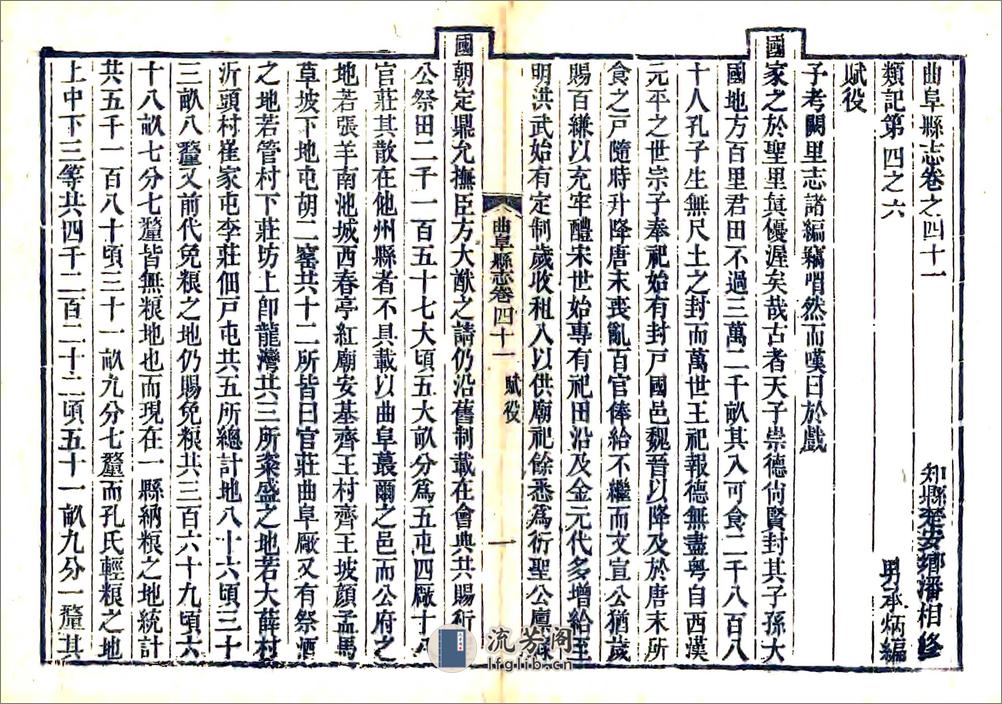 曲阜縣志卷之四十一
知縣楚安鄉潘相修
類記第四之六
男承炳編
賦役
子考闕里志諸編竊喟然而嘆曰於戲
國家之於聖里眞優渥矣哉古者天子崇德尙賢封其子孫大
國地方百里君田不過三萬二千畝其入可食二千八百八
十人孔子生無尺土之封而萬世王祀報德無盡粤自西漢
元平之世宗子奉祀始有封戸國邑魏晉以降及於唐末所
食之戸隨時升降唐末喪亂百官俸給不繼而文宣公猶歲
賜百縑以充牢醴宋世始專有祀田沿及金元代多增給至
明洪武始有定制歲收租入以供廟祀餘悉爲衍聖公廩祿
曲阜縣志卷四十一 賦役 一
國朝定鼎允撫臣方大猷之請仍沿舊制載在會典共賜衍
公祭田二千一百五十七大頃五大畝分爲五屯四厰十八
官莊其散在他州縣者不具載以曲阜蕞爾之邑而公府之
地若張羊南池城西春亭紅廟安基齊王村齊王坡顏孟馬
草坡下地屯胡二窰共十二所皆曰官莊曲阜厰又有祭酒
之地若管村下莊坊上卽龍灣共三所粢盛之地若大薛村
沂頭村崔家屯李莊佃戸屯共五所總計地八十六頃三十
三畝八釐又前代免粮之地仍賜免粮共三百六十九頃六
十八畝七分七釐皆無粮地也而現在一縣納粮之地統計
共五千一百八十頃三十一畝九分七釐而孔氏輕粮之地
上中下三等共四千二百二十二頃五十一畝九分一釐其
流芳阁
lfglib.cn